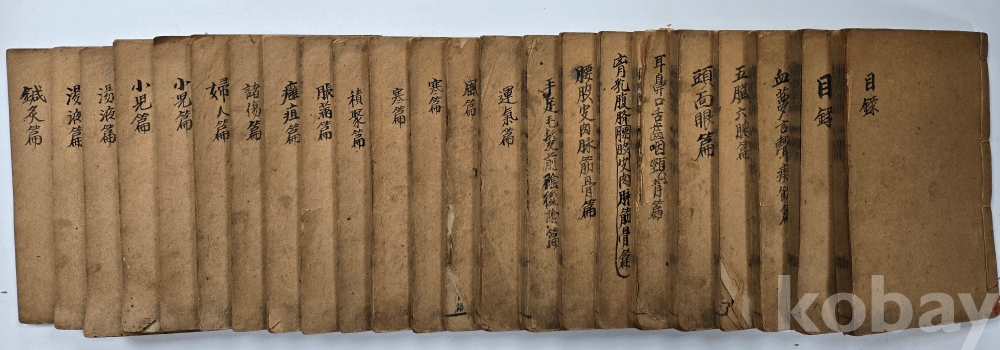 目錄
目錄
血夢言聲痰篇
五臟六腑篇
頭面眼篇
耳鼻口舌齒咽頸背篇
胷乳腹臍腰脇皮肉脉筋骨篇
腰脇皮肉脉筋骨篇
手足毛髮前陰後陰篇
運氣篇
風篇
寒篇
寒篇
積聚篇
脹滿篇
癰疽篇
諸傷篇
婦人篇
小児篇
小児篇
湯液篇
湯液篇
鍼灸篇
kobay